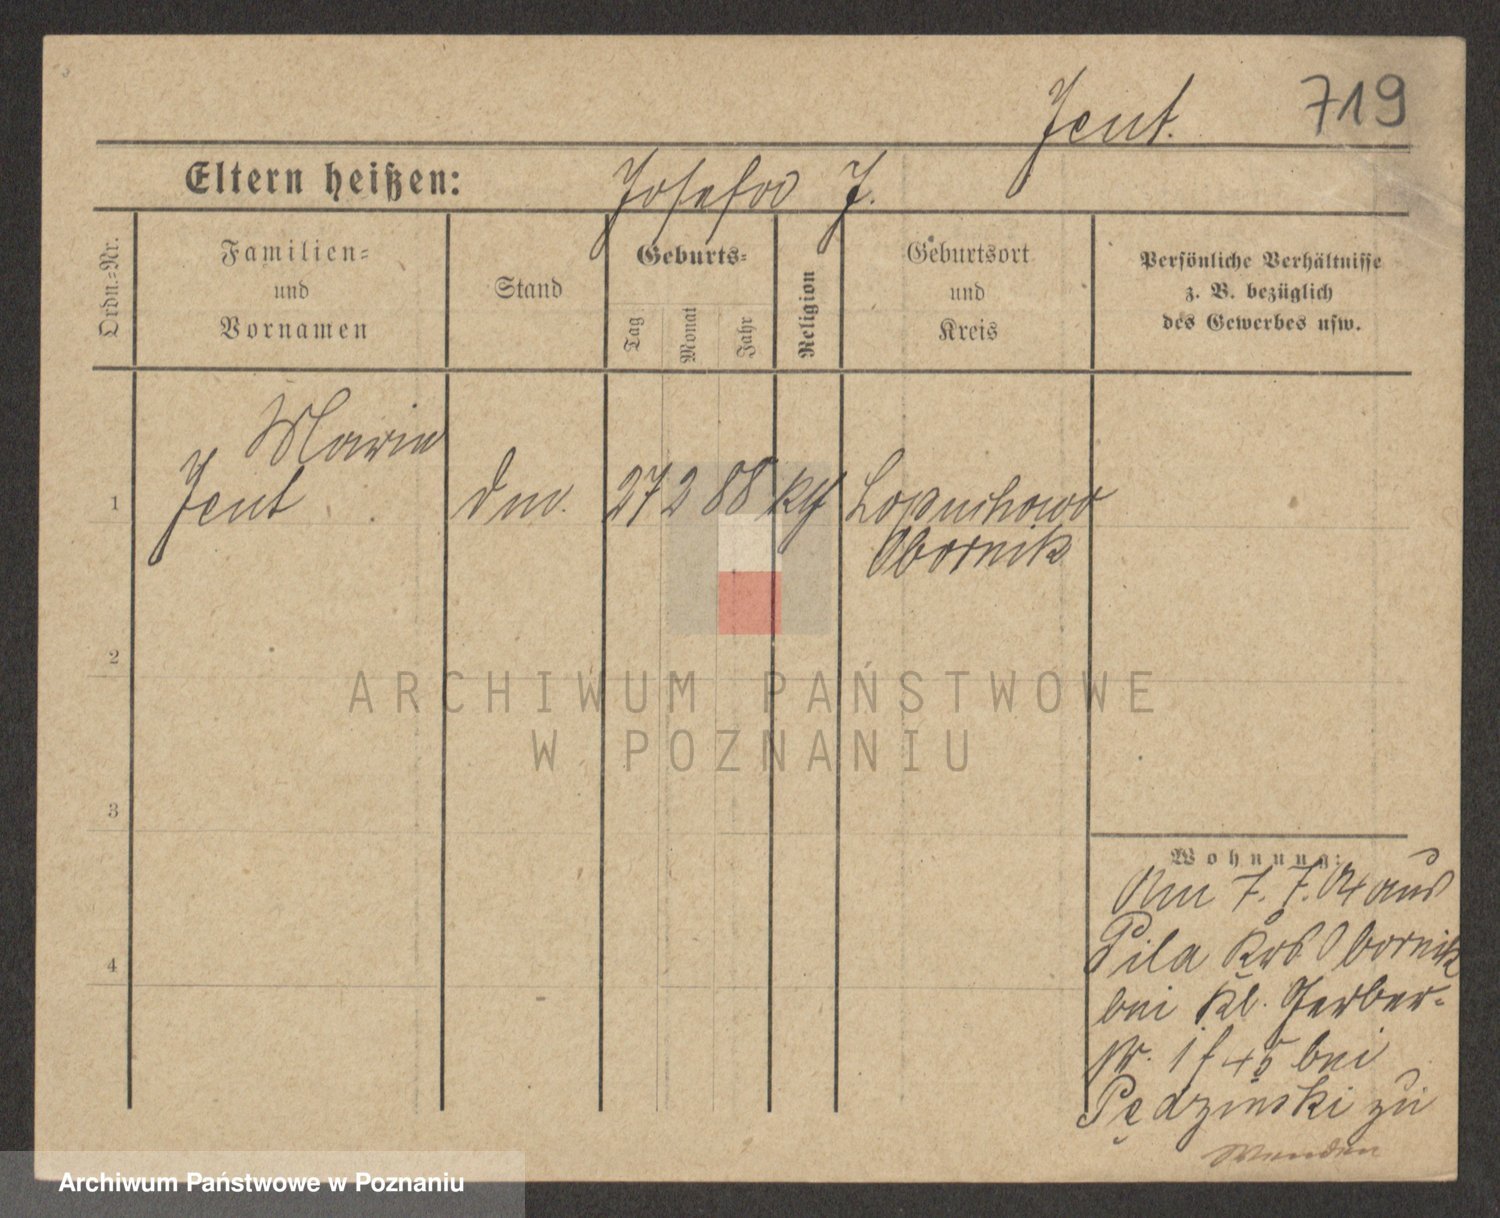 719
Jent.
Eltern heißen: Josefod J.
Ordn.-Nr.
Familien-
und
Vornamen
Stand
Geburts-
Tag
Monat
Jahr
Religion
Geburtsort
und
Kreis
Persönliche Verhältnisse
z. B. bezüglich
des Gewerbes usw.
Maria
1 Jent 27 2 88 Lopuchowo
Obornik
2
ARCHIWUM PAŃSTWOWE
W POZNANIU
3
Wohnung:
Am 7. 7. 04 aus
4 Pila Krs Obornik
bei Kl. Gerber-
bei
zu
Wenden
Archiwum Państwowe w Poznaniu